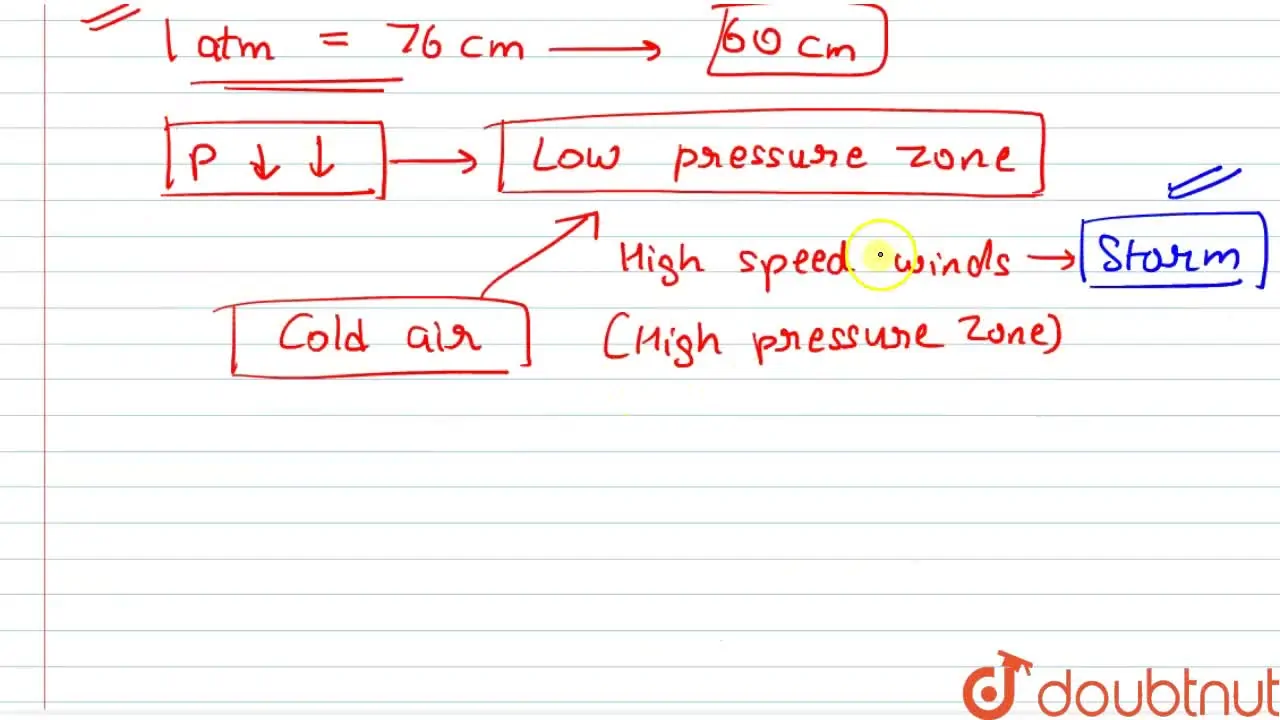 1 atm = 76 cm → 60 cm
P ↓ ↓ → Low pressure zone
High speed winds → Storm
Cold air (High pressure zone)
doubtnut